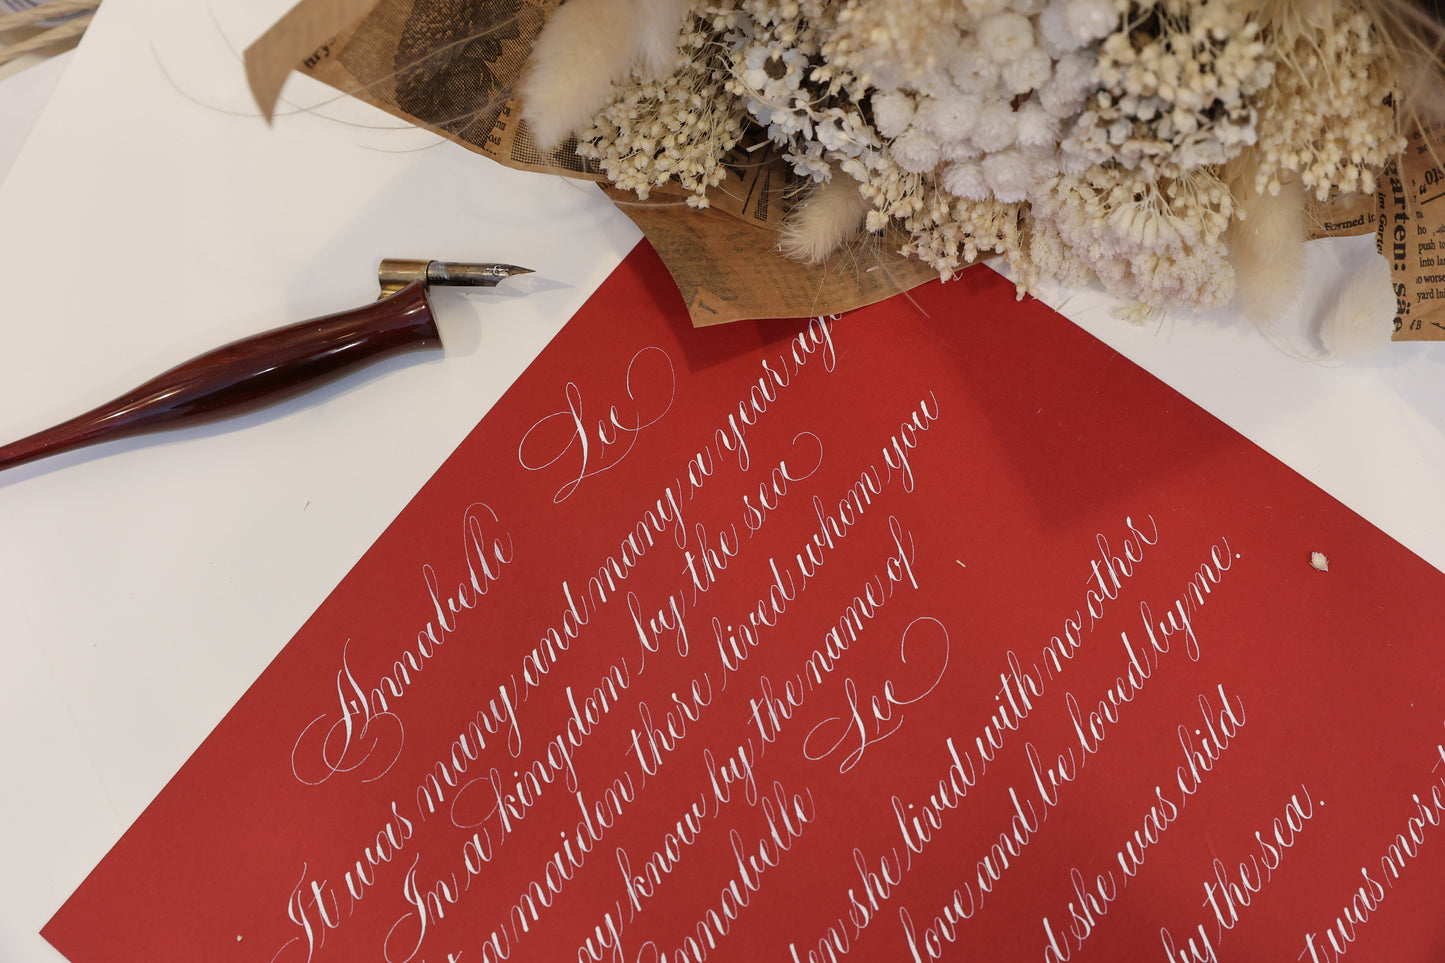 Annabelle Lee
It was many and many a year ag
In a kingdom by the sea
t a maiden there lived whom you
ay know by the name of
nnabelle Lee
den she lived with no other
love and be loved by me.
d she was child
by the sea.
t was more
Formed in
im Garten
garten: säe
push to
into la
worse
yard